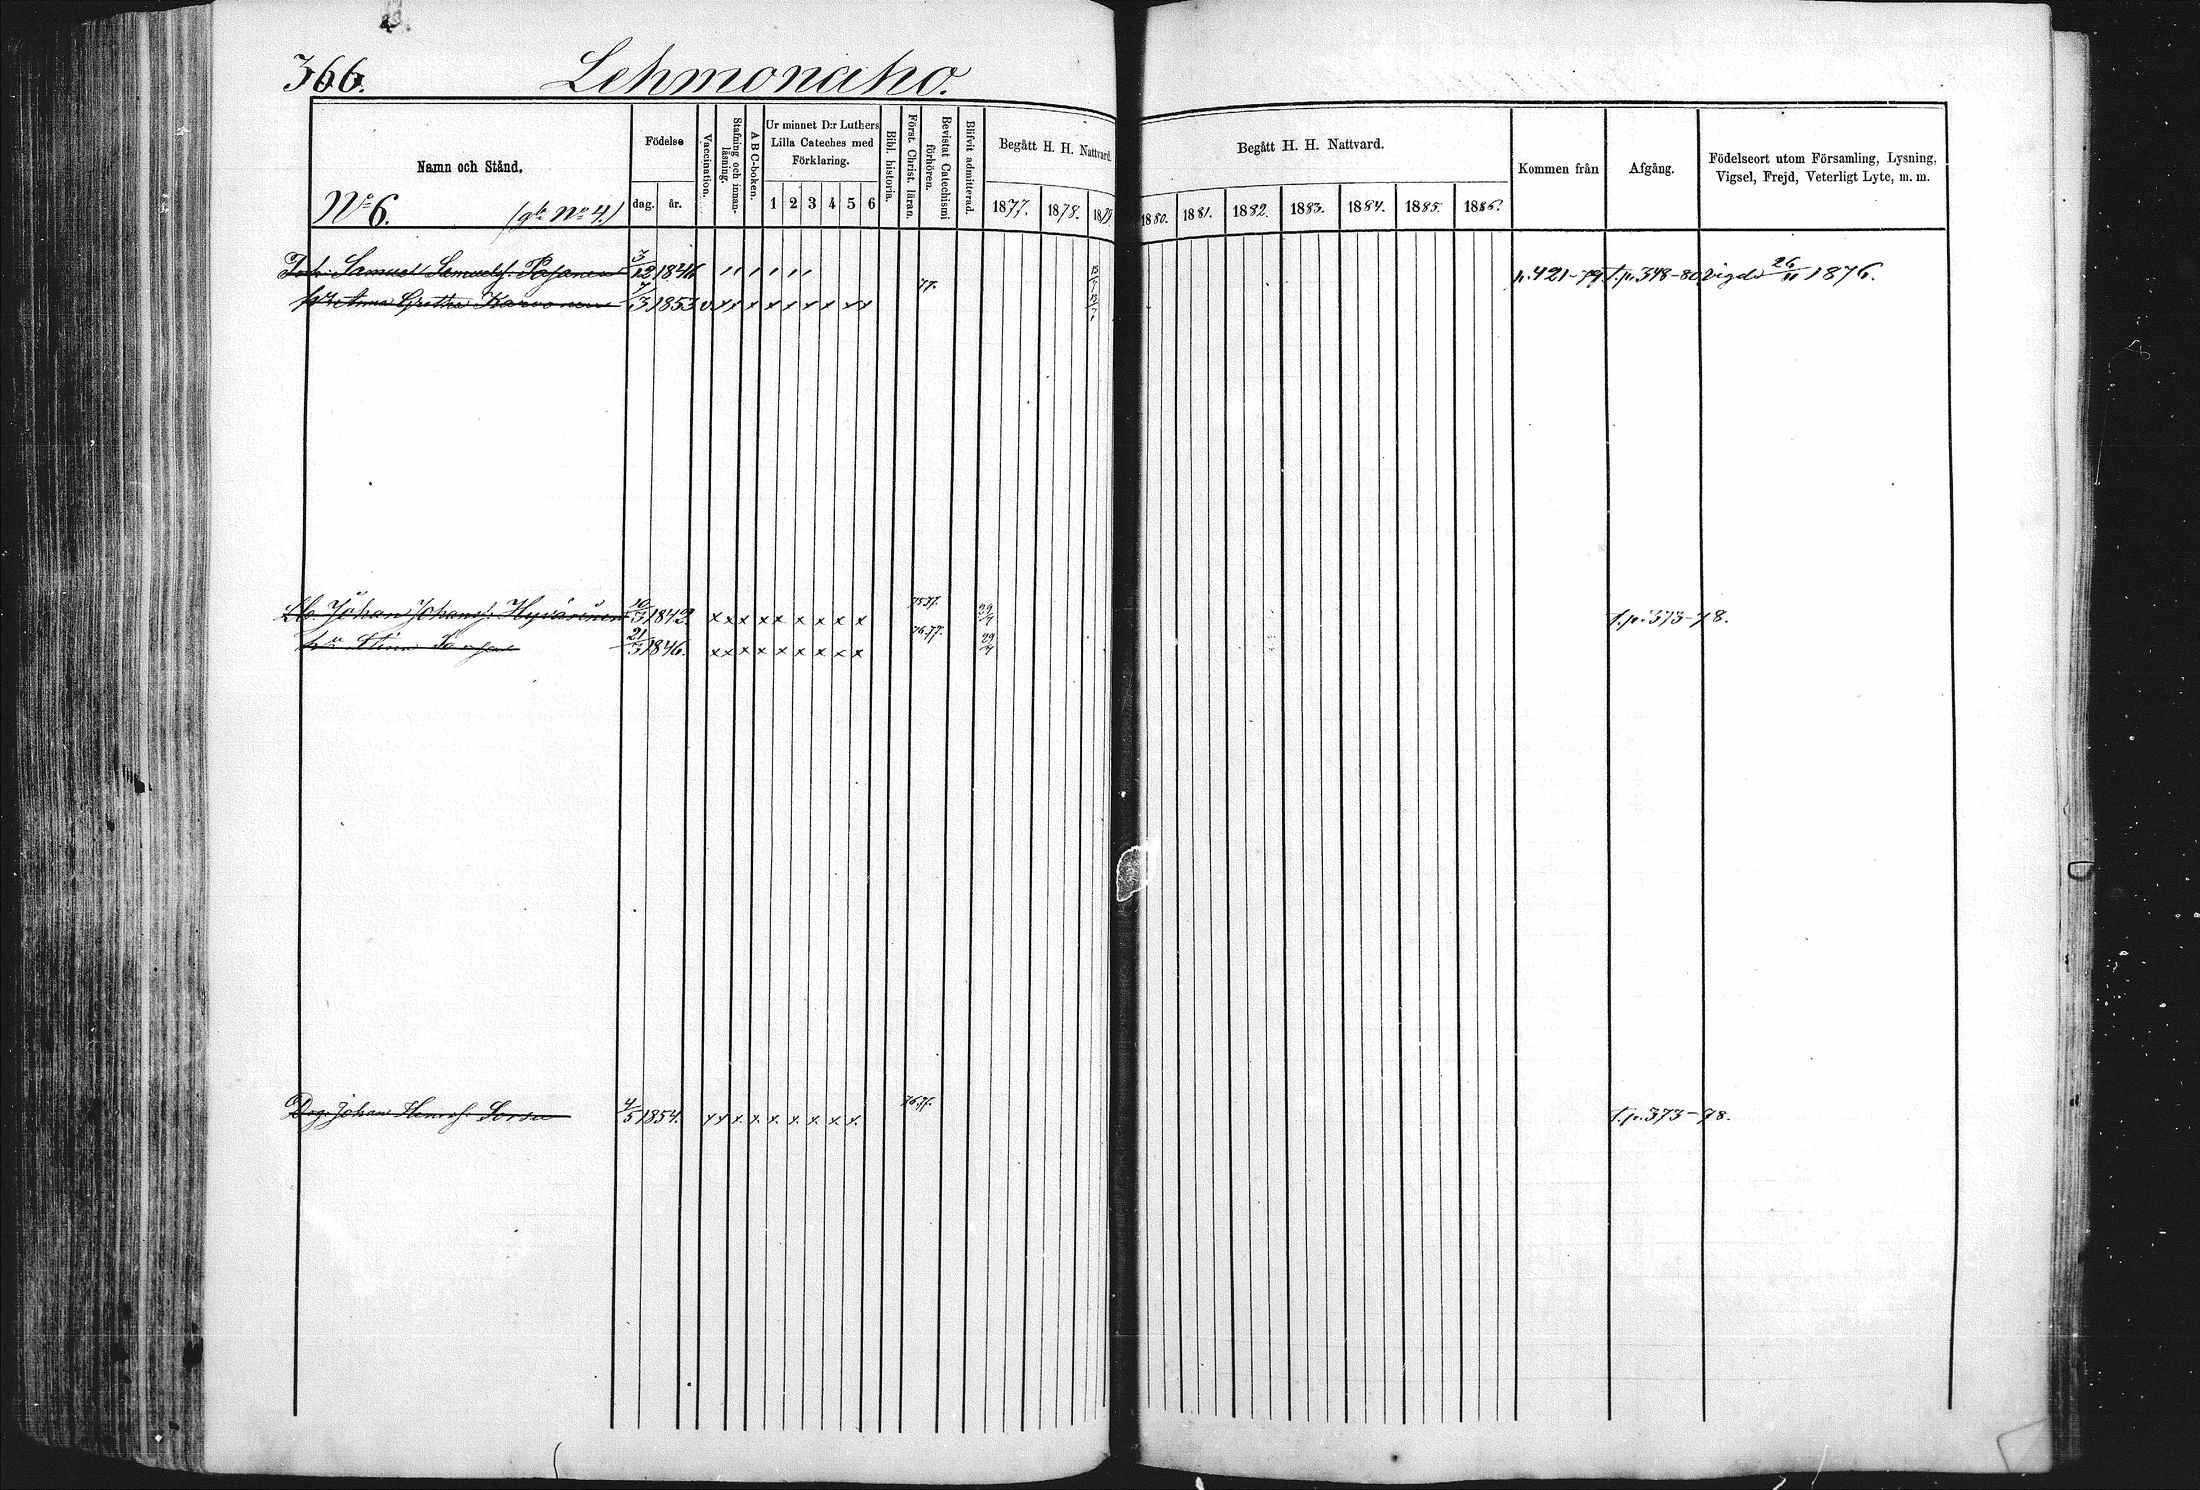 366. Lehmonaho.
Namn och Stånd.
Födelse
dag. år.
Vaccination.
Stafning och innanläsning.
A B C-boken.
Ur minnet D:r Luthers Lilla Cateches med Förklaring.
1 2 3 4 5 6
Bibl. historia.
Först. Christ. läran.
Bevistat Catechismi förhören.
Blifvit admitterad.
Begått H. H. Nattvard.
1877. 1878. 1879
Begått H. H. Nattvard.
1880. 1881. 1882. 1883. 1884. 1885. 1886.
Kommen från
Afgång.
Födelseort utom Församling, Lysning, Vigsel, Frejd, Veterligt Lyte, m. m.
No 6. No 4.)
Samuel Samuelsf. 3/12 1846 p. 421-79 t. p. 348-80 Vigde 26/11 1876.
Anna Gretha Karvonen 7/3 1853 v x x x x x x x x x 77.
Johan Johansf. Hyvärinen 10/3 1842 x x x x x x x x x 75.77. 29/4 t. p. 373-78.
hu Stina 21/3 1846. x x x x x x x x x 76.77. 29/4
Drg. Johan Henrsf. 4/5 1854. x x x x x x x x x 76.77. t. p. 373-78.